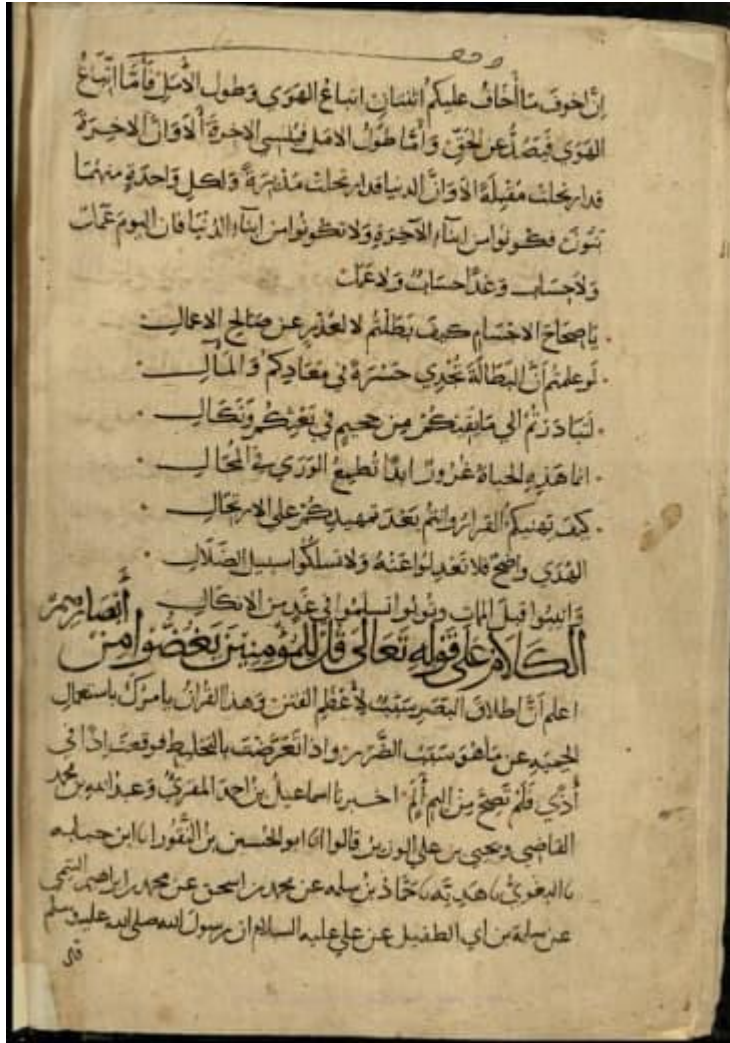 وقف
إن أخوف ما أخاف عليكم اثنتان اتباع الهوى وطول الأمل فأما اتباع
الهوى فيصد عن الحق وأما طول الامل فينسي الاخرة ألا وان الاخرة
قد ارتحلت مقبلة الا وان الدنيا قد ارتحلت مدبرة ولكل واحدة منهما
بنون فكونوا من ابناء الآخرة ولا تكونوا من ابناء الدنيا فان اليوم عمل
ولا حساب وغدا حساب ولا عمل
يا صحاح الاجسام كيف بطلتم لا لعذر عن صالح الاعمال
لو علمتم أن البطالة تجدي حسرة في معادكم والمآل
لتبادرتم الى ما يقيكم من جحيم في بعثكم ونكال
انما هذه الحياة غرور ابدا تطمع الورى في المحال
كيف تهنيكم القرار وانتم بعد تمهيدكم على الارتحال
الهدى واضح فلا تعدلوا عنه ولا تسلكوا سبيل الضلال
وانيبوا قبل الممات وتوبوا تسلموا في غد من الانكال
الكلام على قوله تعالى قل للمؤمنين يغضوا من أبصارهم
اعلم أن اطلاق البصر سبب لأعظم الفتن وهذا القرآن يامرك باستعمال
الحمية عن ما هو سبب الضرر واذا تعرضت بالتخليط فوقعت اذا في
أذى فلم تصح من اليم ألم اخبرنا اسماعيل بن احمد المقري وعبد الله بن محمد
القاضي ويحيى بن علي قالوا انا ابو الحسين بن النقور انا ابن حبابه
نا البغوي نا هدبة نا حماد بن سلمه عن محمد بن اسحق عن محمد بن ابراهيم التيمي
عن سلمة بن ابي الطفيل عن علي عليه السلام ان رسول الله صلى الله عليه وسلم